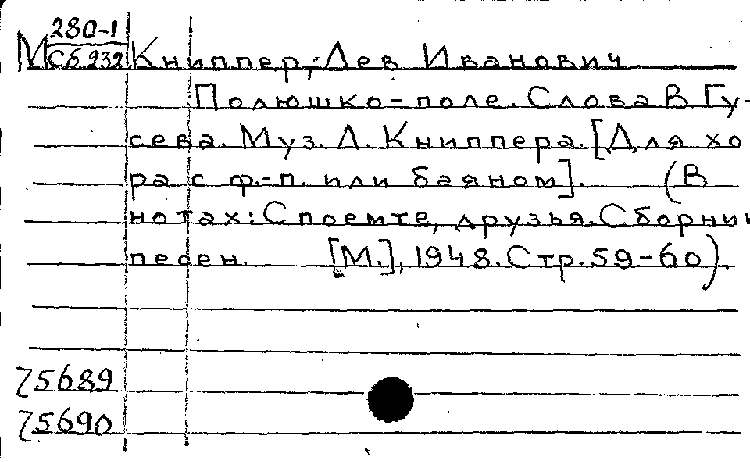 М 280-1
Сб.932 Книппер, Лев Иванович
Полюшко-поле. Слова В. Гу-
сева. Муз. Л. Книппера. [Для хо
ра с ф.-п. или баяном]. (В
нотах: Споемте, друзья. Сборник
песен. [М.], 1948. Стр. 59-60).
75689
75690